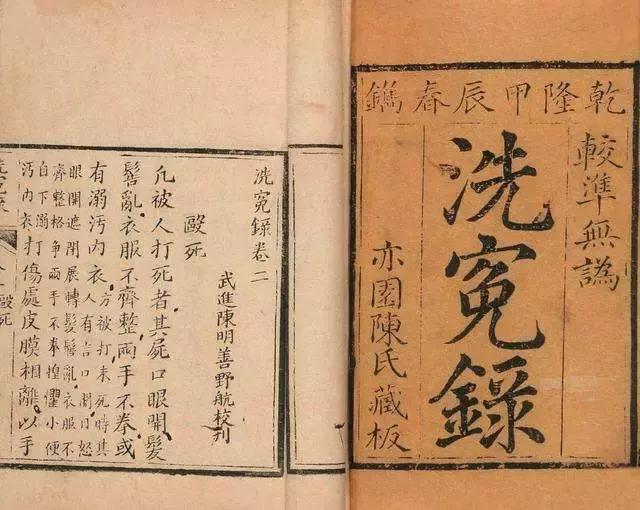 乾隆甲辰春鐫
較準無譌
洗寃錄
亦園陳氏藏板
洗寃錄卷二
武進陳明善野航校刋
毆死
凡被人打死者其屍口眼開髮
髻亂衣服不齊整兩手不拳或
有溺汚內衣
方被打未死時其
人有言口開目怒
眼開遮閉展轉髮髻亂衣服不
齊整格爭兩手不拳惶懼小便
自下溺
汚內衣
打傷處皮膜相離以手
毆死